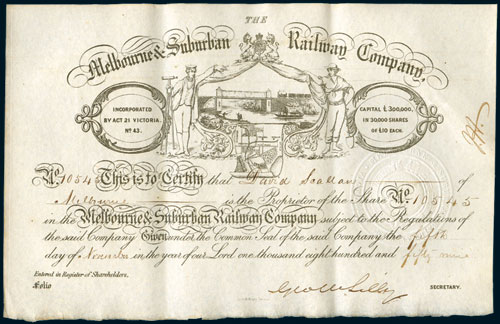 THE
Melbourne & Suburban Railway Company,
INCORPORATED
BY ACT 21 VICTORIA.
No. 43.
CAPITAL £300,000,
IN 30,000 SHARES
OF £10 EACH.
No. 1054 This is to Certify that David of
is the Proprietor of the Share No. 10545
in the Melbourne & Suburban Railway Company subject to the Regulations of
the said Company Given under the Common Seal of the said Company the fifth
day of in the year of our Lord one thousand eight hundred and fifty nine
Entered in Register of Shareholders,
Folio
SECRETARY.